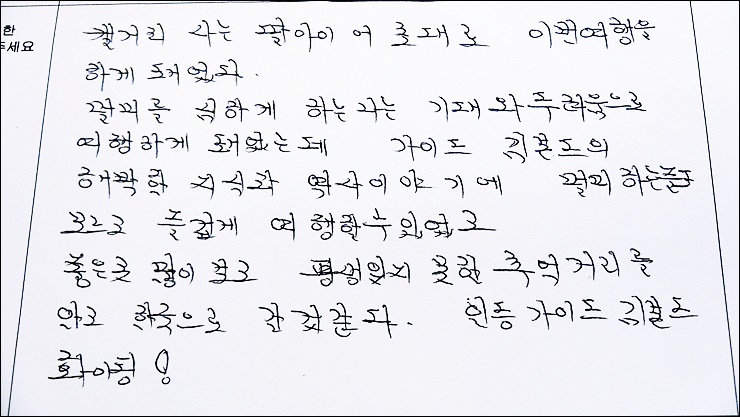 한
주세요
사는 이번여행을
하게 되었다.
멀미를 심하게 하는 나는 기대와 두려움으로
여행하게 되었는데 가이드 의
해박한 지식과 역사이야기에 멀미 하는줄도
모르고 즐겁게 여행할수 있었고
좋은곳 많이 보고 평생잊지 못할 추억거리를
안고 한국으로 간것같다. 인증 가이드
화이팅!